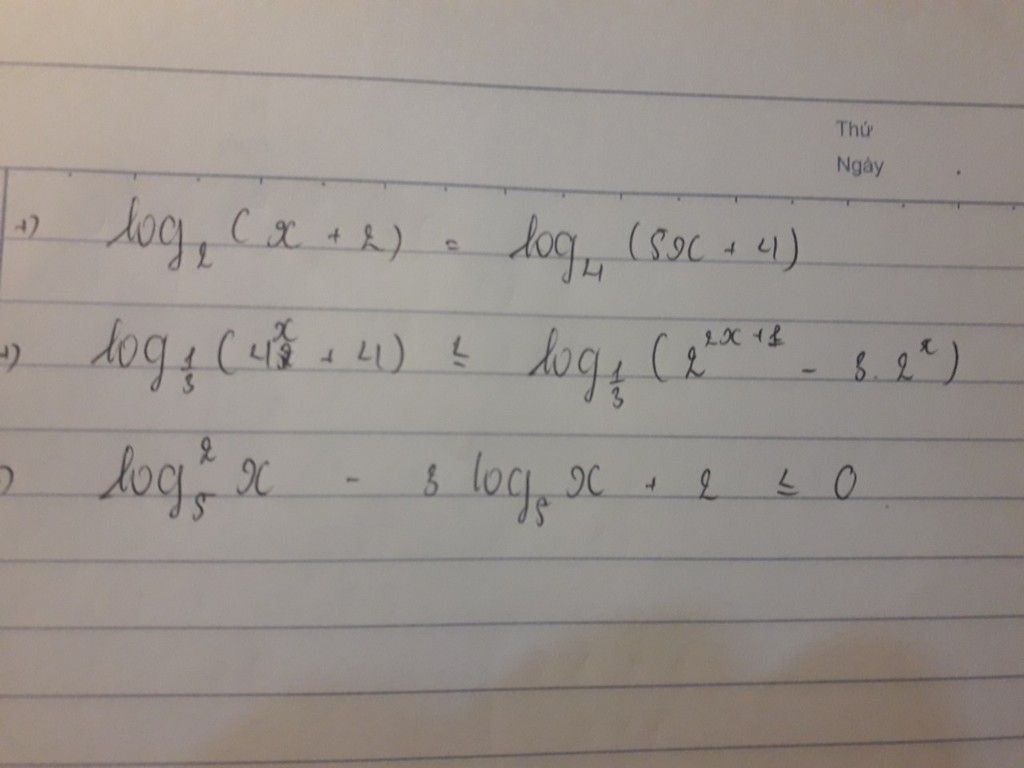 Thứ
Ngày
+) log₂ (x + 2) = log₄ (5x + 4)
+) log_{1/3} (4^x + 4) ≤ log_{1/3} (2^{2x+1} - 3. 2^x)
) log₅² x - 3 log₅ x + 2 ≤ 0